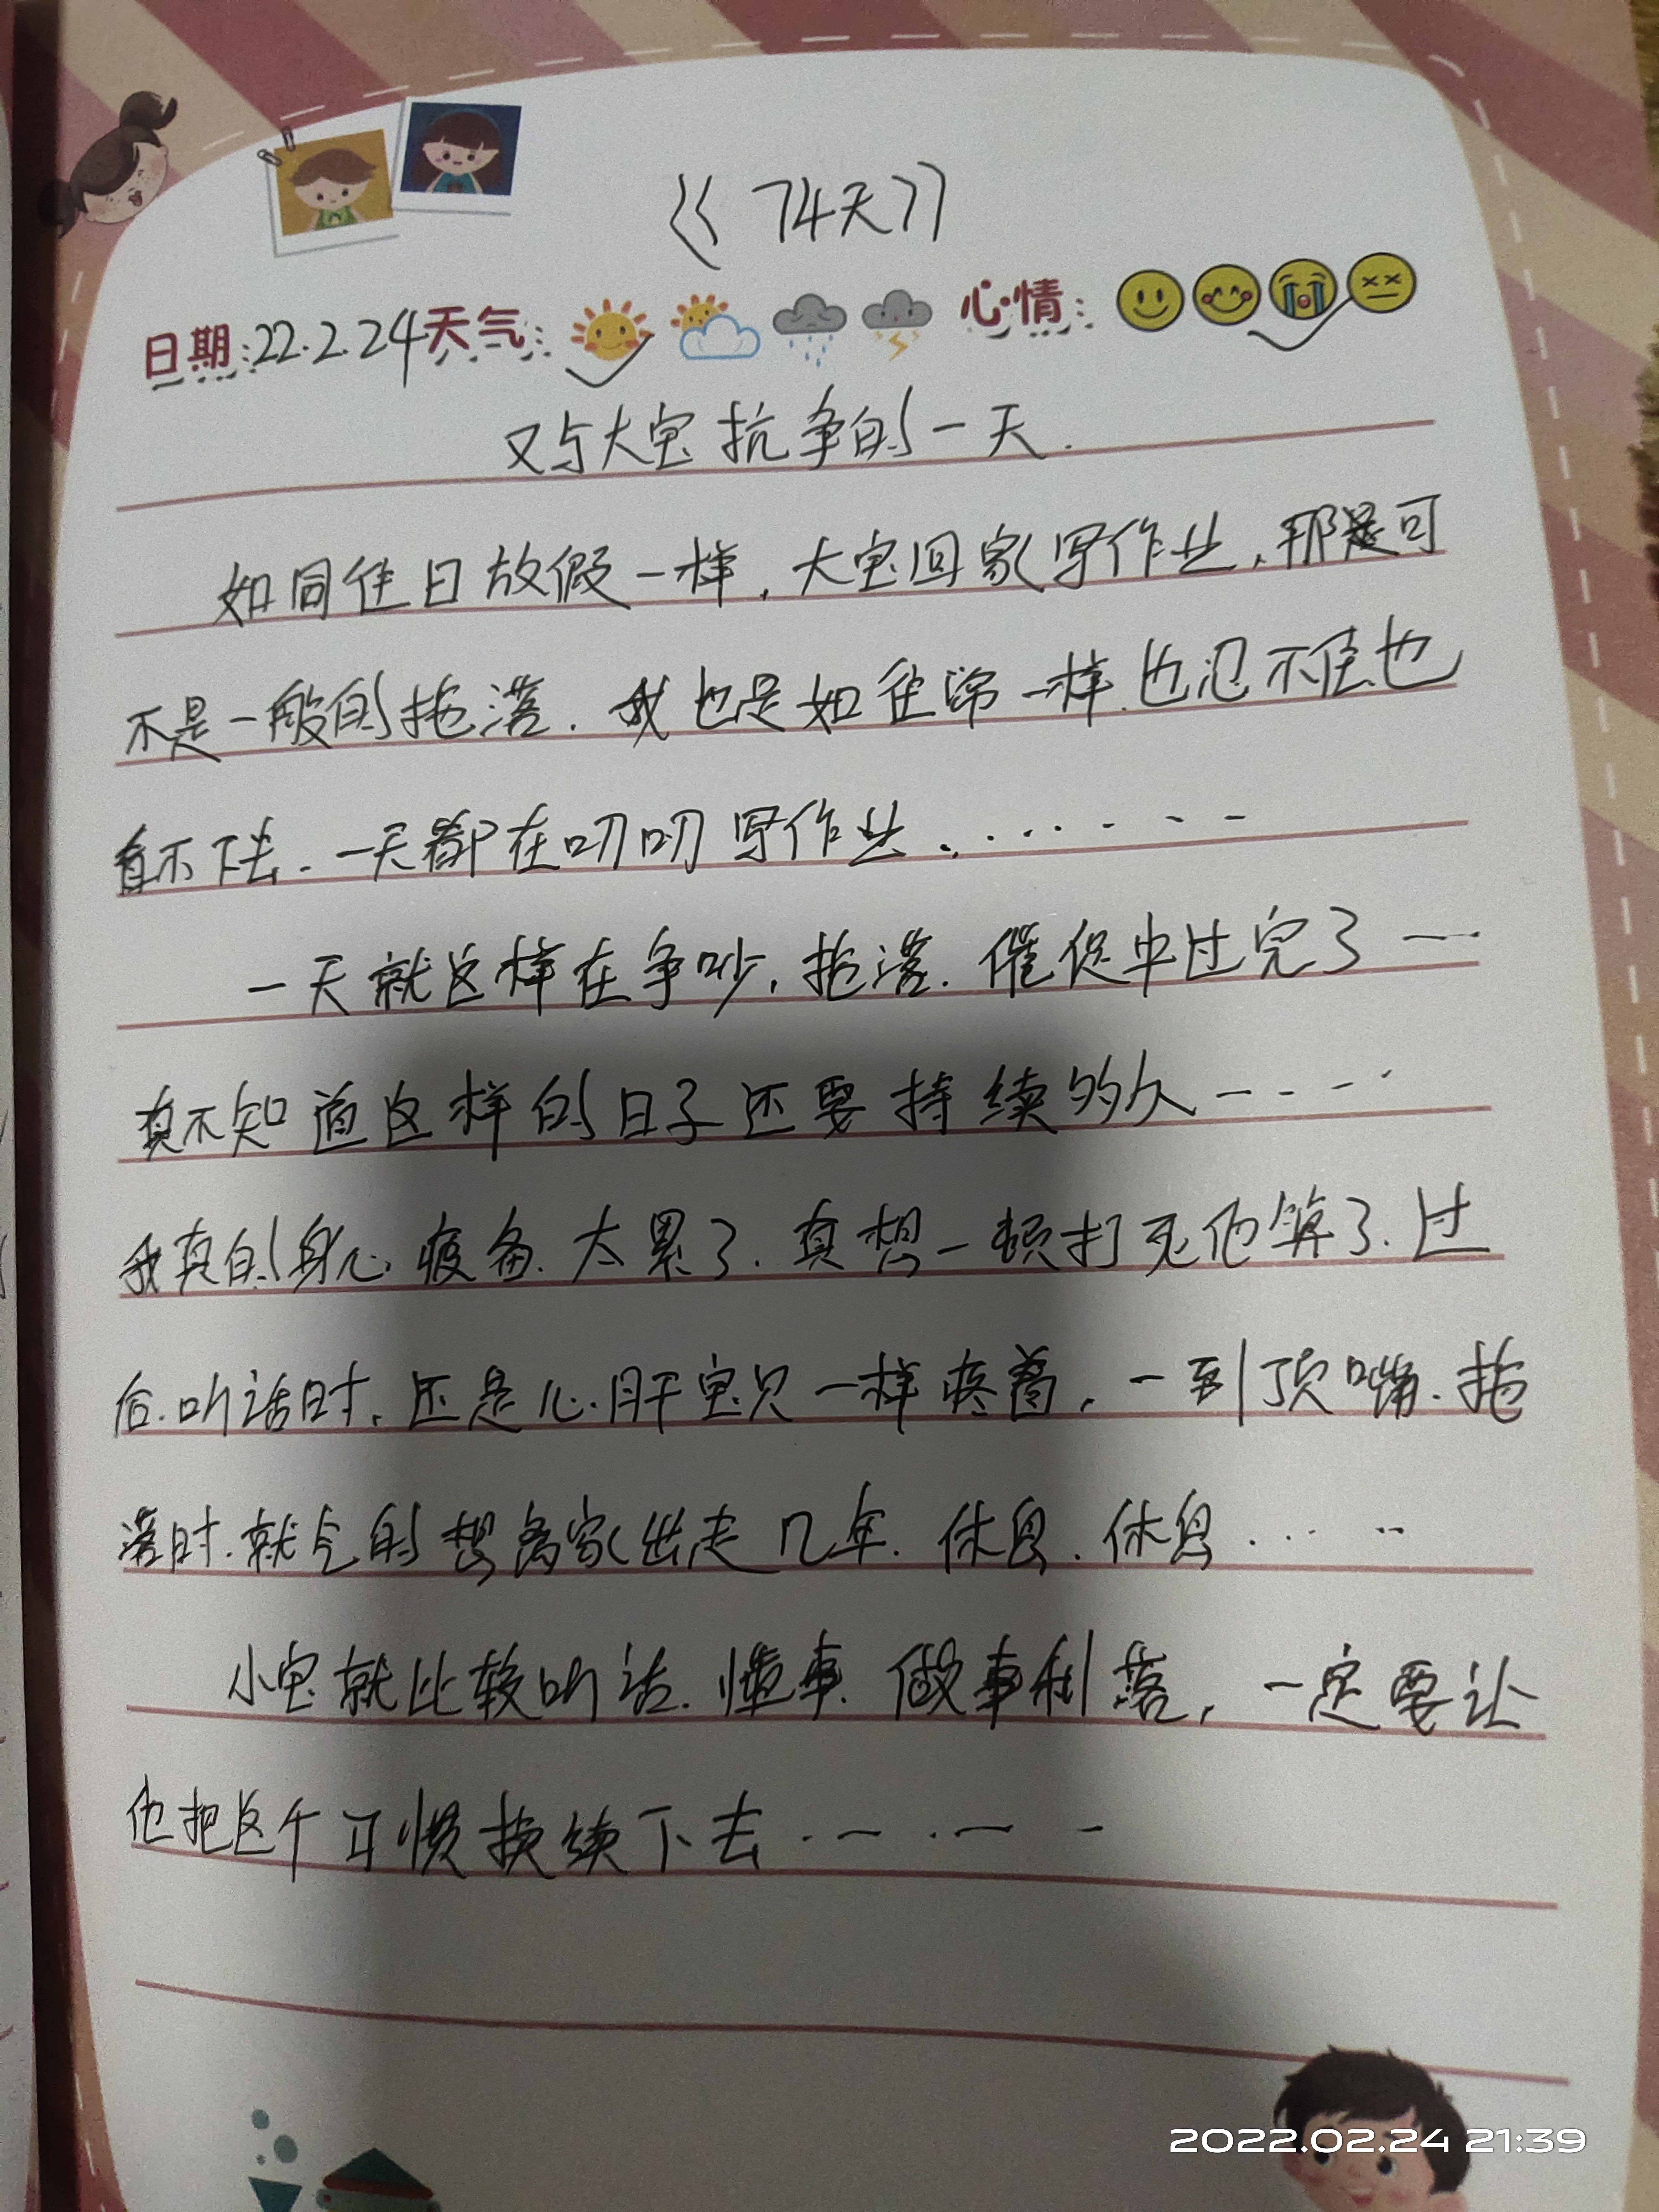 《74天》
日期:22.2.24天气: 心情:
又与大宝抗争的一天.
如同往日放假一样,大宝回家写作业,那是可
不是一般的拖落.我也是如往常一样.也忍不住也
看不下去.一天都在叨叨写作业........
一天就这样在争吵,拖落.催促中过完了……
真不知道这样的日子还要持续多久-----
我真的身心疲备.太累了.真想一顿打死他算了.过
后.听话时,还是心肝宝贝一样疼着,一到顶嘴.拖
落时.就气的想离家出走几年.休息.休息......
小宝就比较听话.懂事.做事利落,一定要让
他把这个习惯持续下去......
2022.02.24 21:39